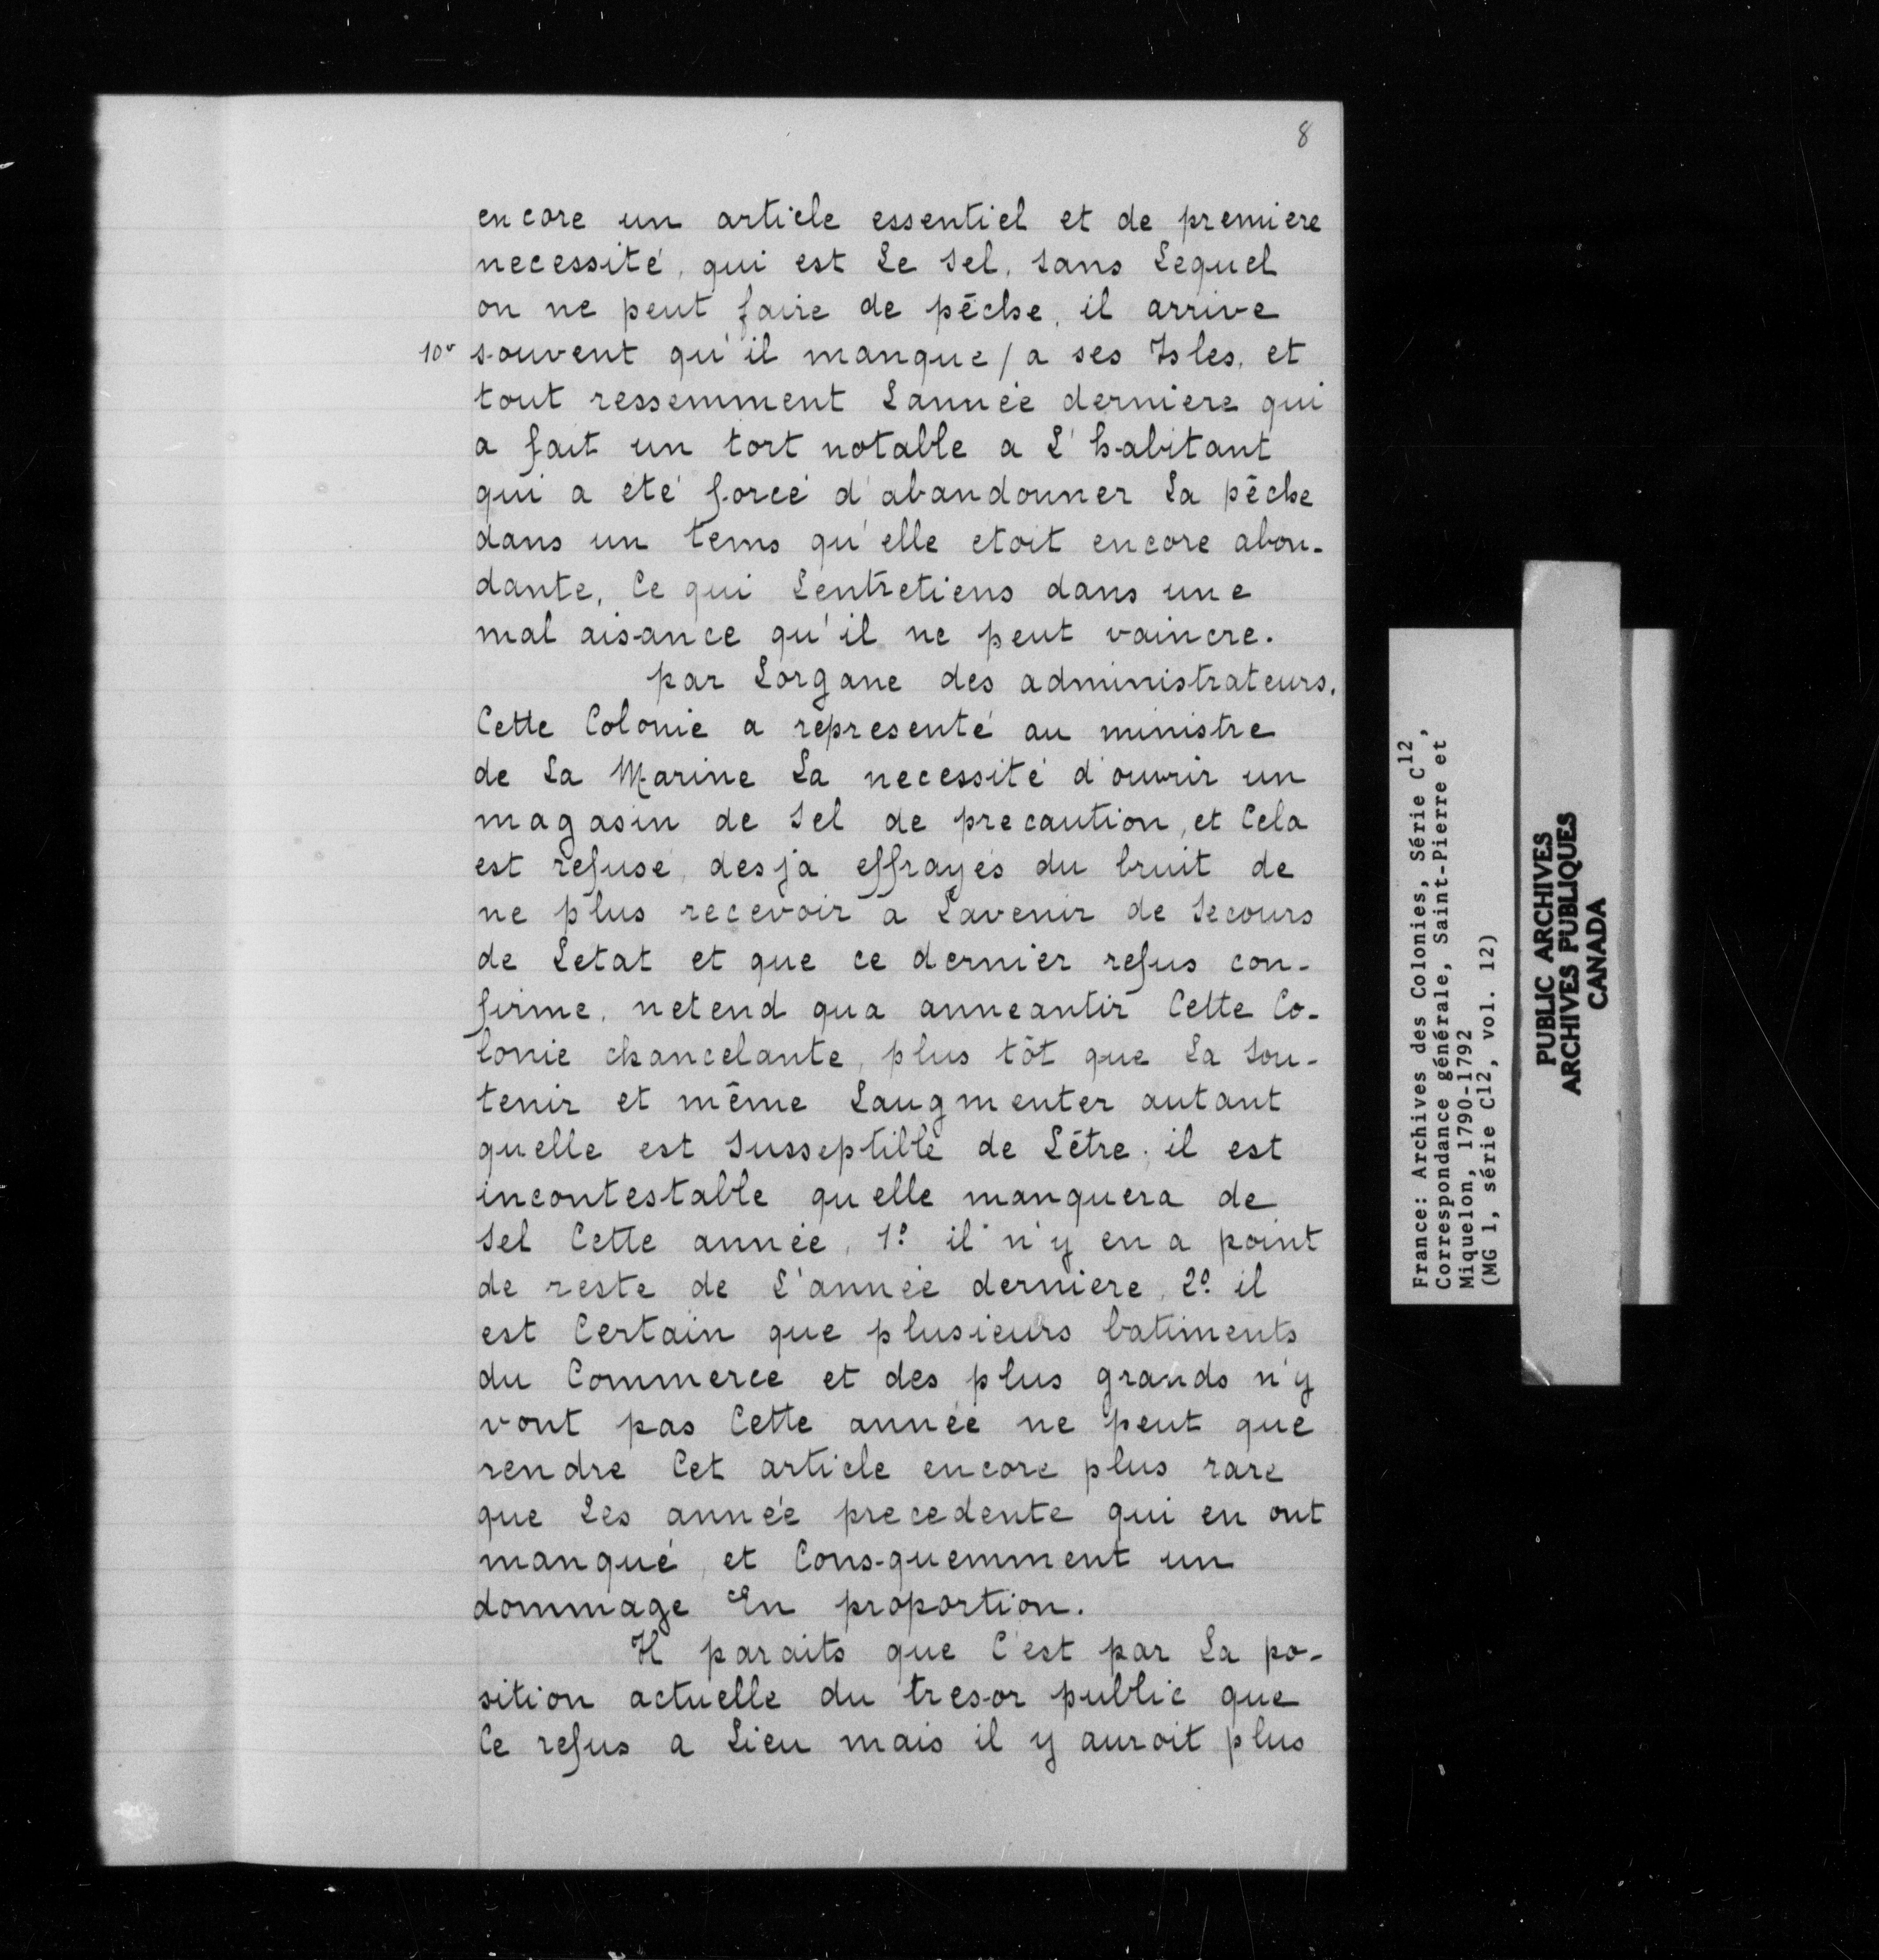 8
encore un article essentiel et de premiere
necessité, qui est Le Sel, Sans Lequel
on ne peut faire de pêche, il arrive
10v souvent qu'il manque / a ses Isles, et
tout ressemment Lannée derniere qui
a fait un tort notable a L'habitant
qui a eté forcé d'abandonner La pêche
dans un tems qu'elle etoit encore abon-
dante, Ce qui Lentretiens dans une
mal aisance qu'il ne peut vaincre.
par Lorgane des administrateurs,
Cette Colonie a representé au ministre
de La Marine La necessité d'ouvrir un
magasin de Sel de precaution, et Cela
est refusé, desja effrayés du bruit de
ne plus recevoir a Lavenir de Secours
de Letat et que ce dernier refus con-
firme, netend qua anneantir Cette Co-
lonie chancelante, plus tôt que La Sou-
tenir et même Laugmenter autant
quelle est Susseptible de Lêtre, il est
incontestable quelle manquera de
Sel Cette année, 1º il n'y en a point
de reste de L'année derniere, 2º il
est Certain que plusieurs batiments
du Commerce et des plus grands n'y
vont pas Cette année ne peut que
rendre Cet article encore plus rare
que Les année precedente qui en ont
manqué, et Consquemment un
dommage En proportion.
Il paraits que C'est par La po-
sition actuelle du tresor public que
Ce refus a Lieu mais il y auroit plus
France: Archives des Colonies, Série C12,
Correspondance générale, Saint-Pierre et
Miquelon, 1790-1792
(MG 1, série C12, vol. 12)
PUBLIC ARCHIVES
ARCHIVES PUBLIQUES
CANADA